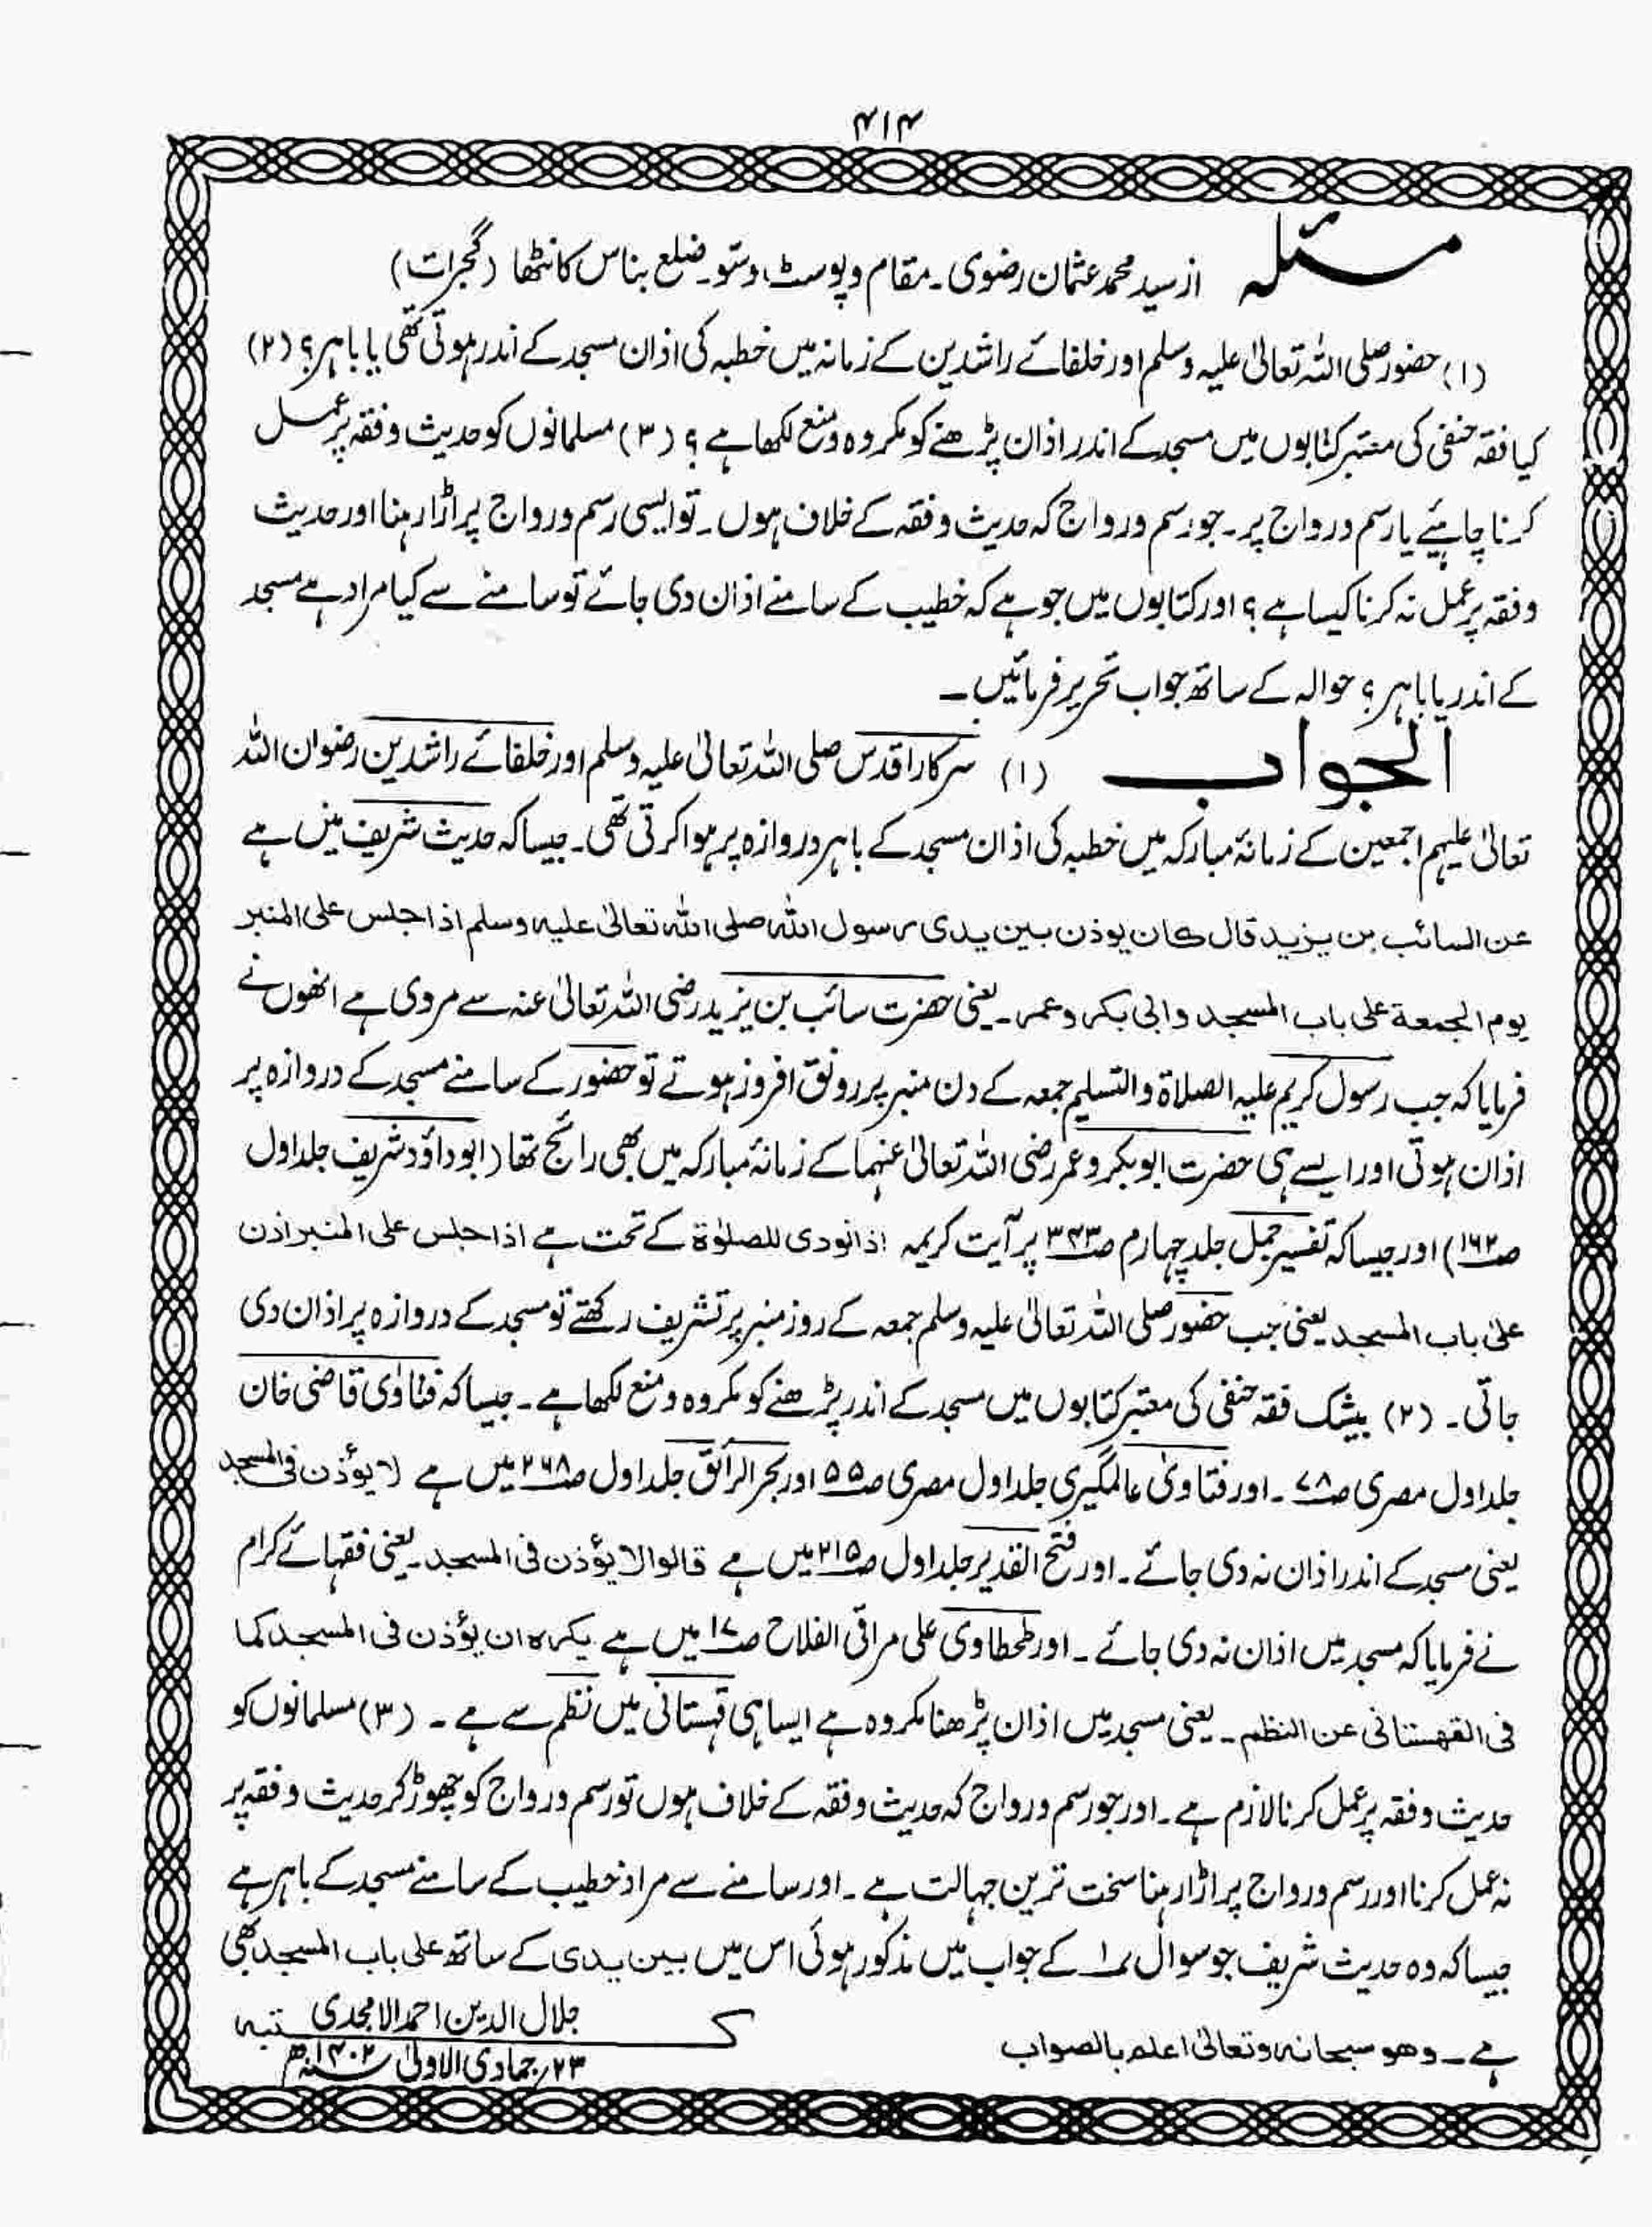 ۴۱۴
مسئلہ از سید محمد عثمان رضوی۔ مقام و پوسٹ وستو۔ ضلع بناس کانٹھا (گجرات)
(۱) حضور صلی اللہ تعالیٰ علیہ وسلم اور خلفائے راشدین کے زمانہ میں خطبہ کی اذان مسجد کے اندر ہوتی تھی یا باہر؟ (۲)
کیا فقہ حنفی کی معتبر کتابوں میں مسجد کے اندر اذان پڑھنے کو مکروہ و منع لکھا ہے؟ (۳) مسلمانوں کو حدیث و فقہ پر عمل
کرنا چاہیئے یا رسم و رواج پر۔ جو رسم و رواج کہ حدیث و فقہ کے خلاف ہوں۔ تو ایسی رسم و رواج پر اڑا رہنا اور حدیث
و فقہ پر عمل نہ کرنا کیسا ہے؟ اور کتابوں میں جو ہے کہ خطیب کے سامنے اذان دی جائے تو سامنے سے کیا مراد ہے مسجد
کے اندر یا باہر؟ حوالہ کے ساتھ جواب تحریر فرمائیں۔
الجواب (۱) سرکار اقدس صلی اللہ تعالیٰ علیہ وسلم اور خلفائے راشدین رضوان اللہ
تعالیٰ علیہم اجمعین کے زمانۂ مبارکہ میں خطبہ کی اذان مسجد کے باہر دروازہ پر ہوا کرتی تھی۔ جیسا کہ حدیث شریف میں ہے
عن السائب بن یزید قال کان یوذن بین یدی رسول اللہ صلی اللہ تعالیٰ علیہ وسلم اذا جلس علی المنبر
یوم الجمعة علی باب المسجد وابی بکر وعمر۔ یعنی حضرت سائب بن یزید رضی اللہ تعالیٰ عنہ سے مروی ہے انھوں نے
فرمایا کہ جب رسول کریم علیہ الصلاۃ والتسلیم جمعہ کے دن منبر پر رونق افروز ہوتے تو حضور کے سامنے مسجد کے دروازہ پر
اذان ہوتی اور ایسے ہی حضرت ابوبکر و عمر رضی اللہ تعالیٰ عنہما کے زمانۂ مبارکہ میں بھی رائج تھا (ابوداؤد شریف جلد اول
ص۱۶۲) اور جیسا کہ تفسیر جمل جلد چہارم ص۳۴۳ پر آیت کریمہ اذا نودی للصلوٰة کے تحت ہے اذا جلس علی المنبر اذن
علیٰ باب المسجد یعنی جب حضور صلی اللہ تعالیٰ علیہ وسلم جمعہ کے روز منبر پر تشریف رکھتے تو مسجد کے دروازہ پر اذان دی
جاتی۔ (۲) بیشک فقہ حنفی کی معتبر کتابوں میں مسجد کے اندر پڑھنے کو مکروہ و منع لکھا ہے۔ جیسا کہ فتاوٰی قاضی خان
جلد اول مصری ص۷۸۔ اور فتاویٰ عالمگیری جلد اول مصری ص۵۵ اور بحر الرائق جلد اول ص۲۶۸ میں ہے لا یؤذن فی المسجد
یعنی مسجد کے اندر اذان نہ دی جائے۔ اور فتح القدیر جلد اول ص۲۱۵ میں ہے قالوا لا یؤذن فی المسجد۔ یعنی فقہائے کرام
نے فرمایا کہ مسجد میں اذان نہ دی جائے۔ اور طحطاوی علی مراقی الفلاح ص۱۷ میں ہے یکرہ ان یؤذن فی المسجد کما
فی القهستانی عن النظم۔ یعنی مسجد میں اذان پڑھنا مکروہ ہے ایسا ہی قہستانی میں نظم سے ہے۔ (۳) مسلمانوں کو
حدیث و فقہ پر عمل کرنا لازم ہے۔ اور جو رسم و رواج کہ حدیث و فقہ کے خلاف ہوں تو رسم و رواج کو چھوڑ کر حدیث و فقہ پر
نہ عمل کرنا اور رسم و رواج پر اڑا رہنا سخت ترین جہالت ہے۔ اور سامنے سے مراد خطیب کے سامنے مسجد کے باہر ہے
جیسا کہ وہ حدیث شریف جو سوال ۱ کے جواب میں مذکور ہوئی اس میں بین یدی کے ساتھ علی باب المسجد بھی
ہے۔ وهو سبحانہ وتعالیٰ اعلم بالصواب
کتبہ جلال الدین احمد الامجدی
۲۳؍ جمادی الاولیٰ ۱۴۰۲ھ